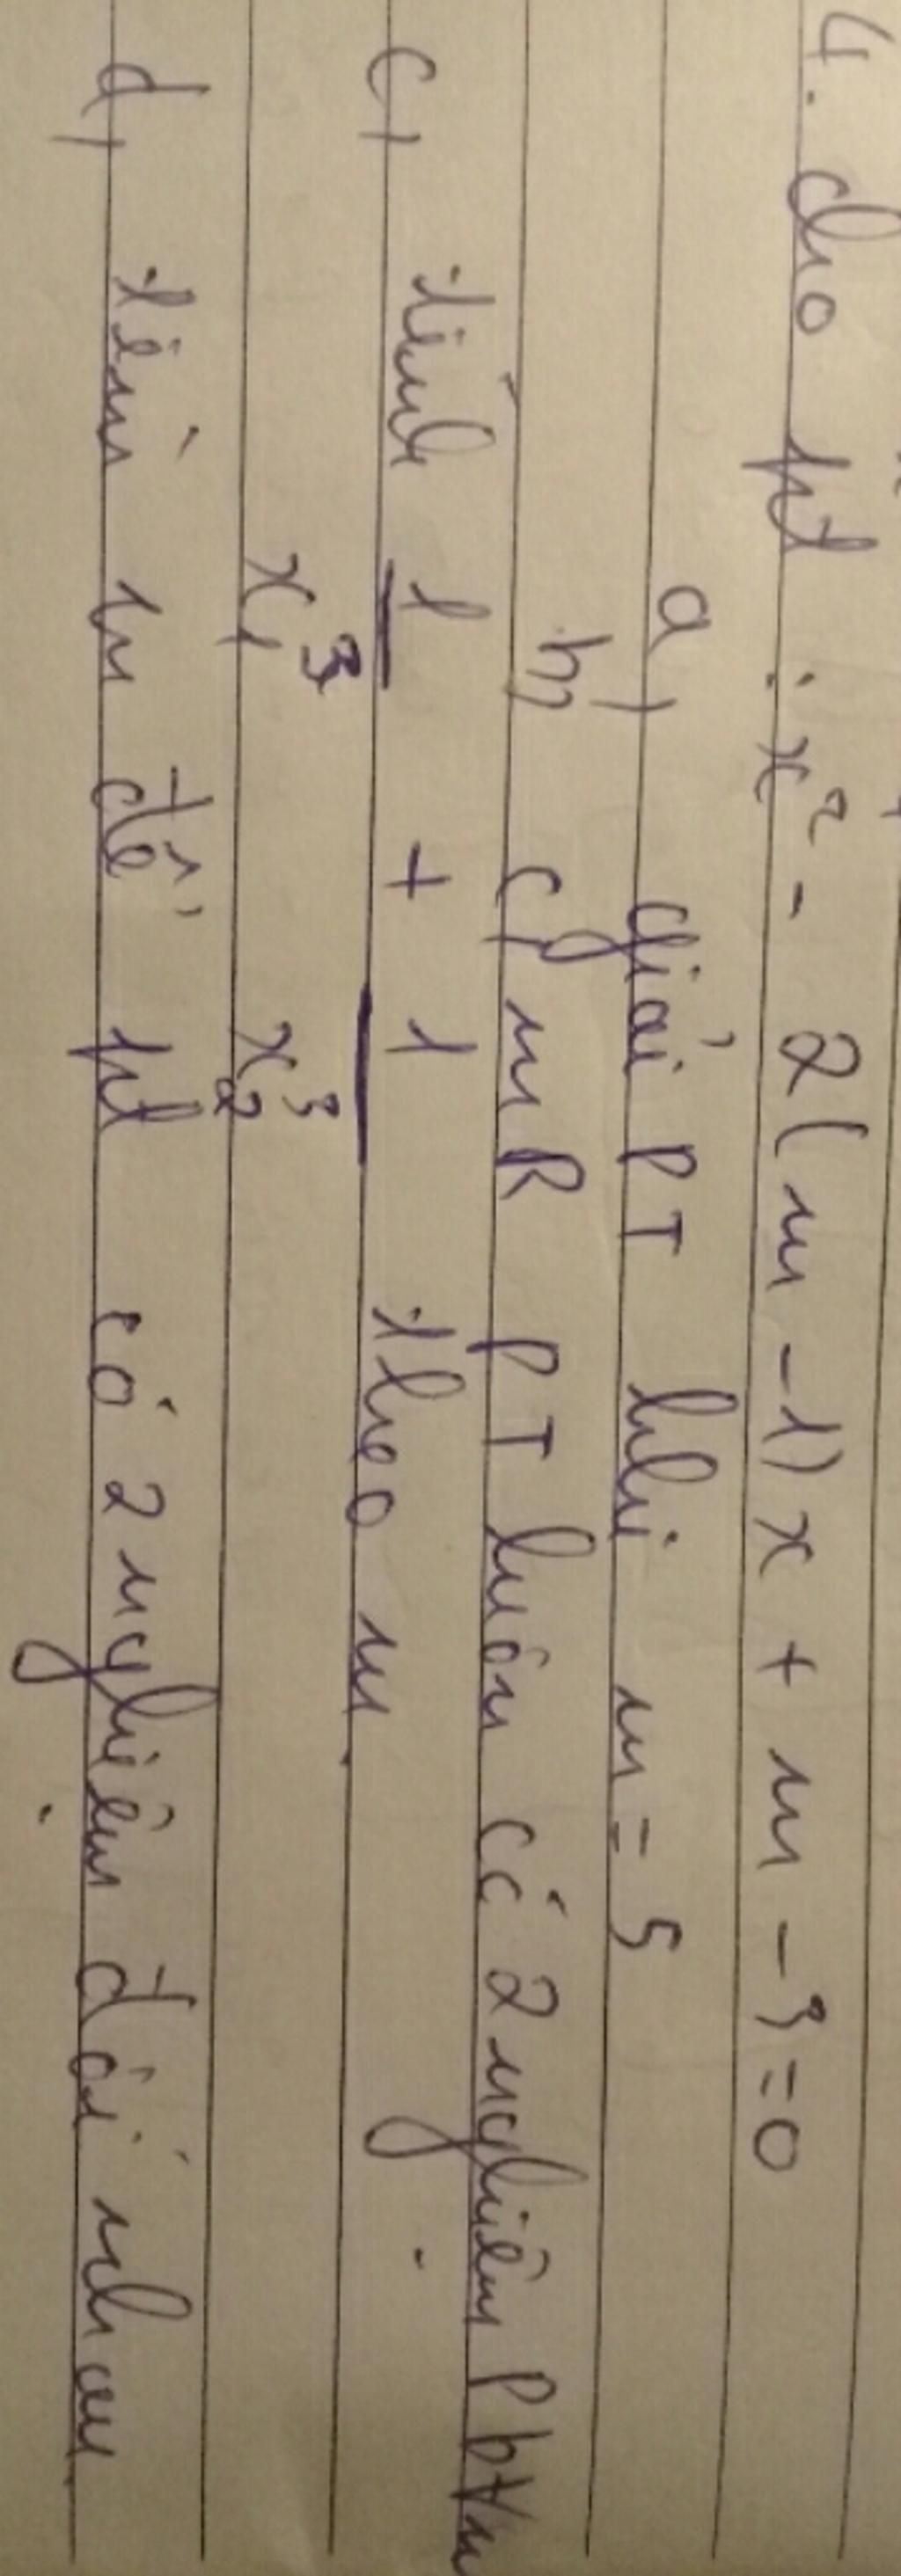 4. cho pt : x² - 2(m-1)x + m - 3 = 0
a, giải PT khi m = 5
b, CMR PT luôn có 2 nghiệm Pb ∀m
c, tính 1/x₁³ + 1/x₂³ theo m.
d, tìm m để pt có 2 nghiệm đối nhau.